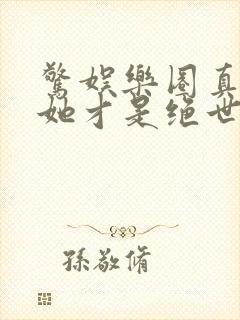 驚娛樂圈真
她才是绝世
孫敬脩